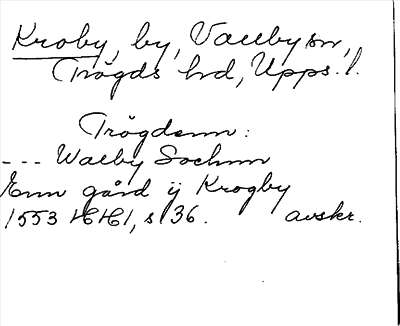 Kroby, by, Vallby sn,
Trögds hd, Upps. l.
Trögdenn:
--- Walby Sochnn
Enn gård ij Krogby
1553 HH1, s 36. avskr.